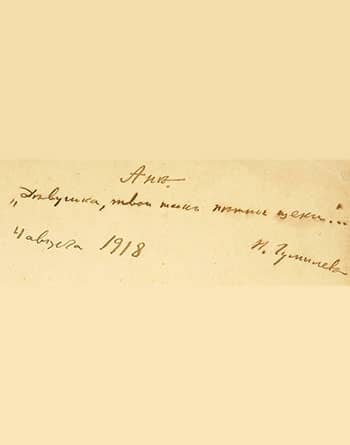 Анѣ.
„Дѣвушка, твои такъ нѣжны щеки..."
4 августа 1918 Н. Гумилевъ